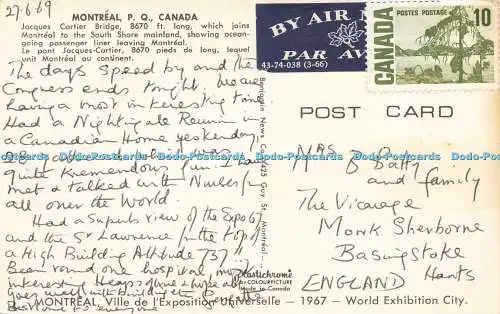 27.6.69
MONTRÉAL, P. Q., CANADA
Jacques Cartier Bridge, 8670 ft. long, which joins
Montréal to the South Shore mainland, showing ocean-
going passenger liner leaving Montréal.
Le pont Jacques-Cartier, 8670 pieds de long, lequel
unit Montréal au continent.
The days speed by and the
Congress ends tonight, have
having a most interesting time
Had a Nightingale Reunion in
a Canadian Home yesterday
quite tremendous fun. I have
met & talked with Nurses from
all over the World.
Had a superb view of the Expo 67
and the St Lawrence from the top of
a High Building Altitude 737 ft
Been round one hospital, most
interesting Hope
goes well with building the
Best love to everyone
BY AIR MAIL
PAR AVION
43-74-038 (3-66)
POSTES POSTAGE
10
CANADA
POST CARD
Mrs B Batty
and family
The Vicarage
Monk Sherborne
Basingstoke
Hants
ENGLAND
Benjamin News Co., 3425 Guy St., Montréal
plastichrome
by COLOURPICTURE
Made in Canada
MONTRÉAL, Ville de l'Exposition Universelle – 1967 – World Exhibition City.
Postcards Datapostcards Datapostcards Datapostcards Datapostcards